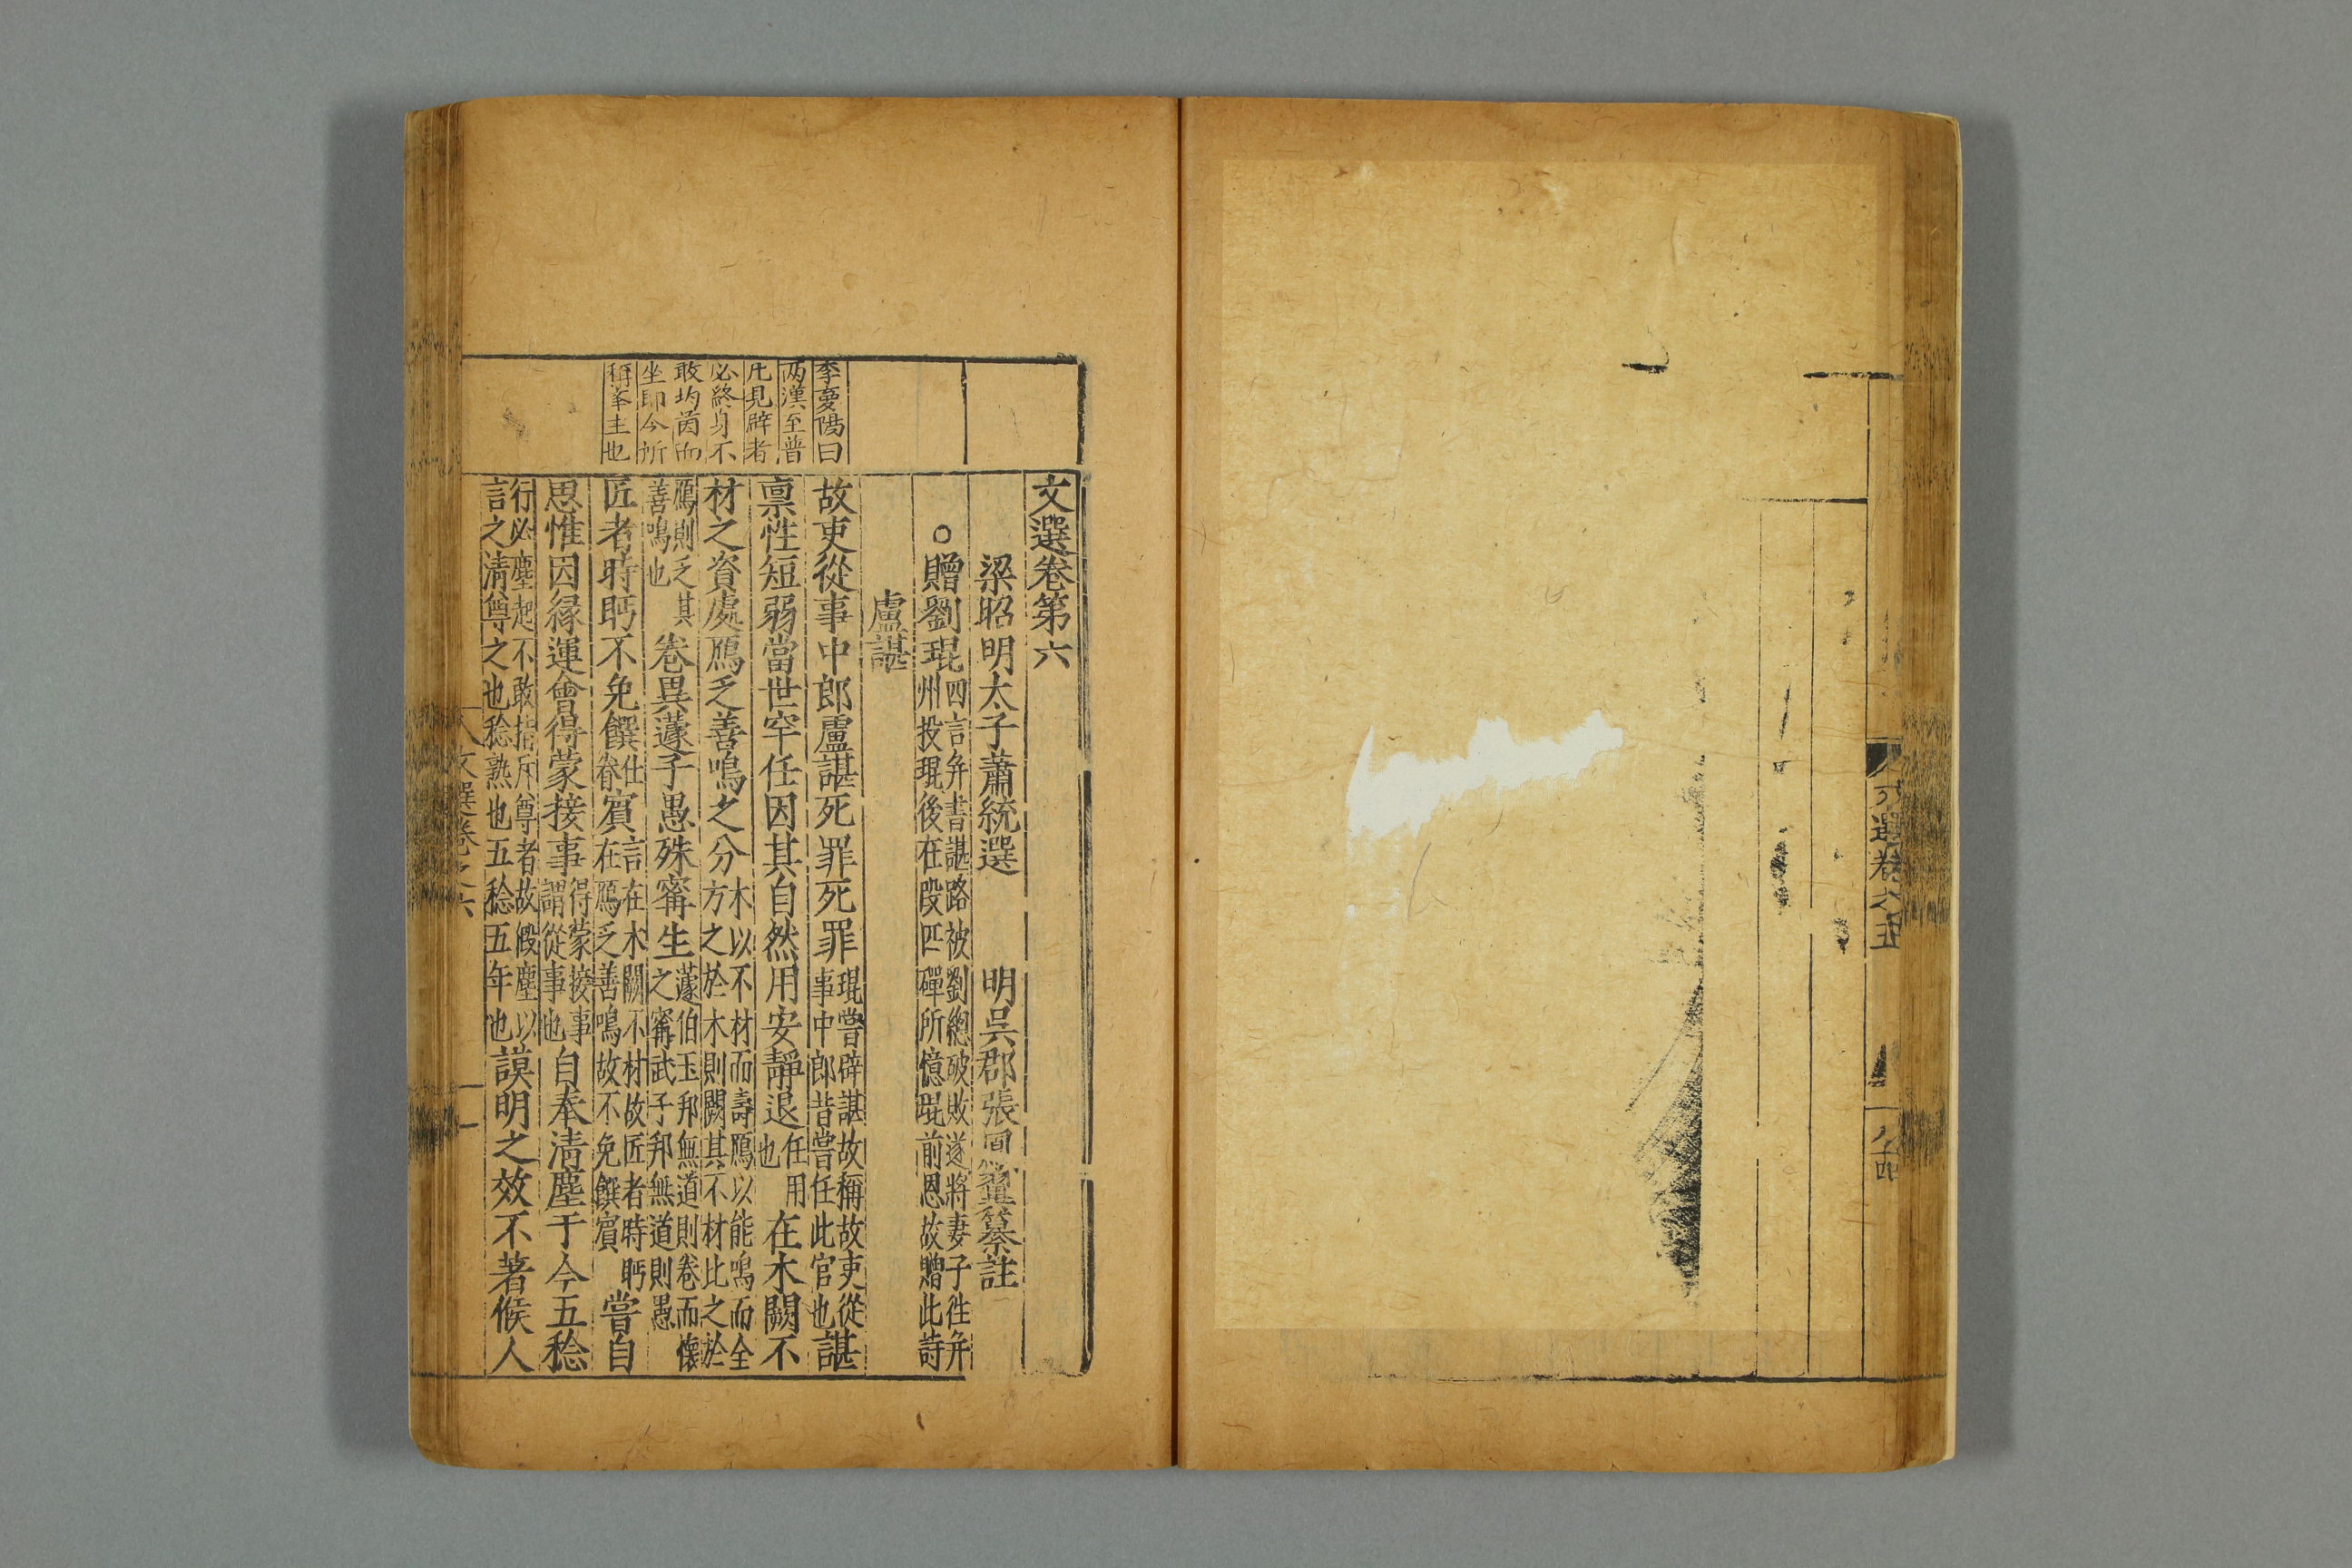 文選卷五
文選卷第六
梁昭明太子蕭統選　明吳郡張鳳翼纂註
○贈劉琨
四言并書諶路被劉總破敗遂將妻子徃并
州投琨後在段匹磾所憶琨前恩故贈此詩
盧諶
故吏從事中郎盧諶死罪死罪
琨嘗辟諶故稱故吏從
事中郎昔嘗任此官也
諶
稟性短弱當世罕任因其自然用安靜退
任用
也
在木闕不
材之資處鴈乏善鳴之分
木以不材而壽鴈以能鳴而全
方之於木則闕其不材比之於
鴈則乏其
善鳴也
卷異蘧子愚殊甯生
蘧伯玉邦無道則卷而懷
之甯武子邦無道則愚
匠者時眄不免饌
仕
眷
賔
言在木闕不材故匠者時眄
在鴈乏善鳴故不免饌賔
嘗自
思惟因緣運會得蒙接事
得蒙接事
謂從事也
自奉淸塵于今五稔
行必塵起不敢指斥尊者故假塵以
言之淸尊之也稔熟也五稔五年也
謨明之效不著候人
李慶陽曰
两漢至晉
凡見辟者
必終身不
敢均茵而
坐即今所
稱峯主也
文選卷之六
一